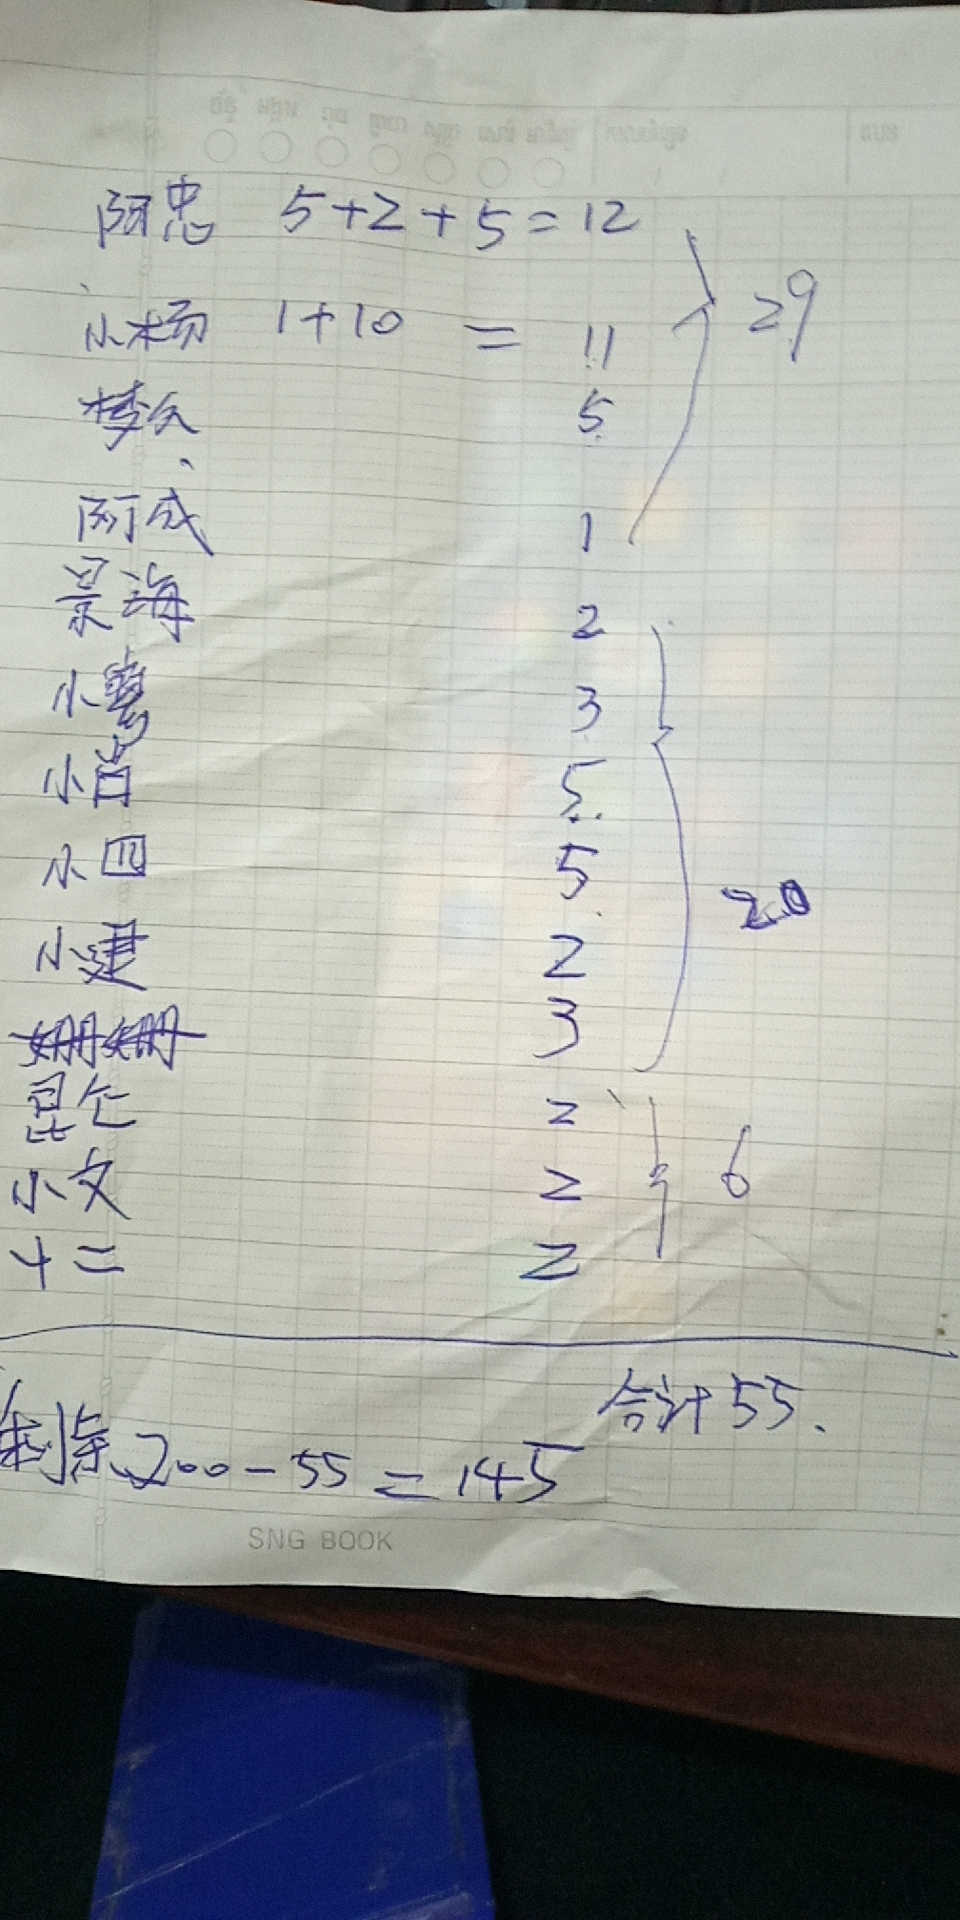 阿忠 5+2+5=12
29
小杨 1+10 = 11
梦久 5
阿成 1
景海 2
小粤 3
小肖 5
小四 5
20
小建 2
姗姗 3
昆仑 2
6
小文 2
十二 2
合计55、
剩余 200-55=145
SNG BOOK